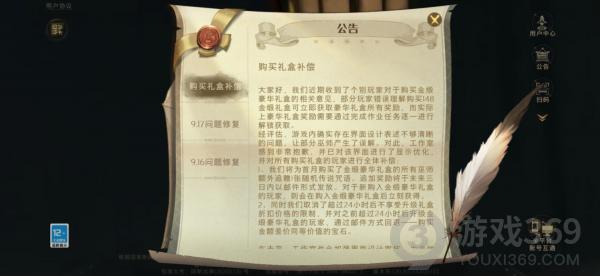 用户协议
公告
用户中心
公告
扫码
购买礼盒补偿
9.17问题修复
9.16问题修复
购买礼盒补偿
大家好，我们近期收到了个别玩家对于购买金缎
豪华礼盒的相关意见，部分玩家错误理解购买148
金缎礼盒可立即获取豪华礼盒所有奖励，而实际
上豪华礼盒奖励需要通过完成作业任务逐一进行
解锁获取。
经评估，游戏内确实存在界面设计表述不够清晰
的问题，让部分巫师产生了误解。对此，工作室
感到非常抱歉，并已对该界面进行了显示优化，
并对所有购买礼盒的玩家进行全体补偿：
1，我们将为首月购买了金缎豪华礼盒的所有巫师
额外追赠1张随机传说咒语，追加奖励将于未来三
日内以邮件形式发放。对于新购入金缎豪华礼盒
的玩家，则会在购入金缎豪华礼盒后立刻获得。
2，同时我们取消了超过24小时后不享受升级礼盒
折扣价格的限制，并对之前超过24小时后升级金
缎豪华礼盒的玩家，通过邮件方式回退一个购买
金额差价同等价值的宝石。
12+
账号互通
游戏369
YOUXI369.COM